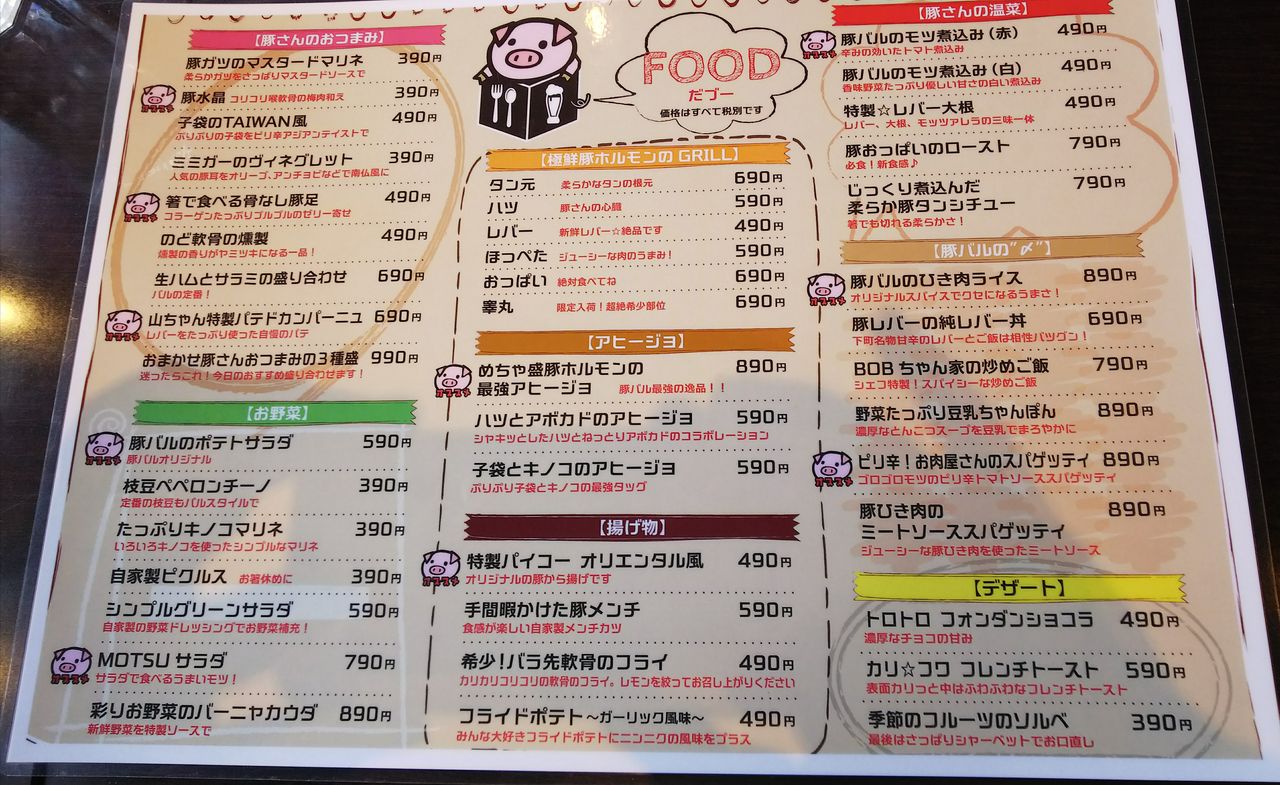 【豚さんのおつまみ】
豚ガツのマスタードマリネ 390円
柔らかガツをさっぱりマスタードソースで
オススメ
豚水晶 コリコリ喉軟骨の梅肉和え 390円
子袋のTAIWAN風 490円
ぷりぷりの子袋をピリ辛アジアンテイストで
ミミガーのヴィネグレット 390円
人気の豚耳をオリーブ、アンチョビなどで南仏風に
オススメ
箸で食べる骨なし豚足 490円
コラーゲンたっぷりプルプルのゼリー寄せ
のど軟骨の燻製 490円
燻製の香りがヤミツキになる一品！
生ハムとサラミの盛り合わせ 690円
バルの定番！
オススメ
山ちゃん特製パテドカンパーニュ 690円
レバーをたっぷり使った自慢のパテ
おまかせ豚さんおつまみの3種盛 990円
迷ったらこれ！今日のおすすめ盛り合わせます！
【お野菜】
オススメ
豚バルのポテトサラダ 590円
豚バルオリジナル
枝豆ペペロンチーノ 390円
定番の枝豆もバルスタイルで
たっぷりキノコマリネ 390円
いろいろキノコを使ったシンプルなマリネ
自家製ピクルス お箸休めに 390円
シンプルグリーンサラダ 590円
自家製の野菜ドレッシングでお野菜補充！
オススメ
MOTSUサラダ 790円
サラダで食べるうまいモツ！
彩りお野菜のバーニャカウダ 890円
新鮮野菜を特製ソースで
FOOD
だブー
価格はすべて税別です
【極鮮豚ホルモンのGRILL】
タン元 柔らかなタンの根元 690円
ハツ 豚さんの心臓 590円
レバー 新鮮レバー☆絶品です 490円
ほっぺた ジューシーな肉のうまみ！ 590円
おっぱい 絶対食べてね 690円
睾丸 限定入荷！超絶希少部位 690円
【アヒージョ】
オススメ
めちゃ盛豚ホルモンの 890円
最強アヒージョ 豚バル最強の逸品！！
ハツとアボカドのアヒージョ 590円
シャキッとしたハツとねっとりアボカドのコラボレーション
子袋とキノコのアヒージョ 590円
ぷりぷり子袋とキノコの最強タッグ
【揚げ物】
オススメ
特製パイコー オリエンタル風 490円
オリジナルの豚から揚げです
手間暇かけた豚メンチ 590円
食感が楽しい自家製メンチカツ
希少！バラ先軟骨のフライ 490円
カリカリコリコリの軟骨のフライ。レモンを絞ってお召し上がりください
フライドポテト ～ガーリック風味～ 490円
みんな大好きフライドポテトにニンニクの風味をプラス
【豚さんの温菜】
オススメ
豚バルのモツ煮込み（赤） 490円
辛みの効いたトマト煮込み
豚バルのモツ煮込み（白） 490円
香味野菜たっぷり優しい甘さの白い煮込み
特製☆レバー大根 490円
レバー、大根、モッツァレラの三味一体
豚おっぱいのロースト 790円
必食！新食感♪
じっくり煮込んだ 790円
柔らか豚タンシチュー
箸でも切れる柔らかさ！
【豚バルの"〆"】
オススメ
豚バルのひき肉ライス 890円
オリジナルスパイスでクセになるうまさ！
豚レバーの純レバー丼 690円
下町名物甘辛のレバーとご飯は相性バツグン！
BOBちゃん家の炒めご飯 790円
シエコ特製！スパイシーな炒めご飯
野菜たっぷり豆乳ちゃんぽん 890円
濃厚なとんこつスープを豆乳でまろやかに
オススメ
ピリ辛！お肉屋さんのスパゲッティ 890円
ゴロゴロモツのピリ辛トマトソーススパゲッティ
豚ひき肉の 890円
ミートソーススパゲッティ
ジューシーな豚ひき肉を使ったミートソース
【デザート】
トロトロ フォンダンショコラ 490円
濃厚なチョコの甘み
カリ☆フワ フレンチトースト 590円
表面カリっと中はふわふわなフレンチトースト
季節のフルーツのソルベ 390円
最後はさっぱりシャーベットでお口直し